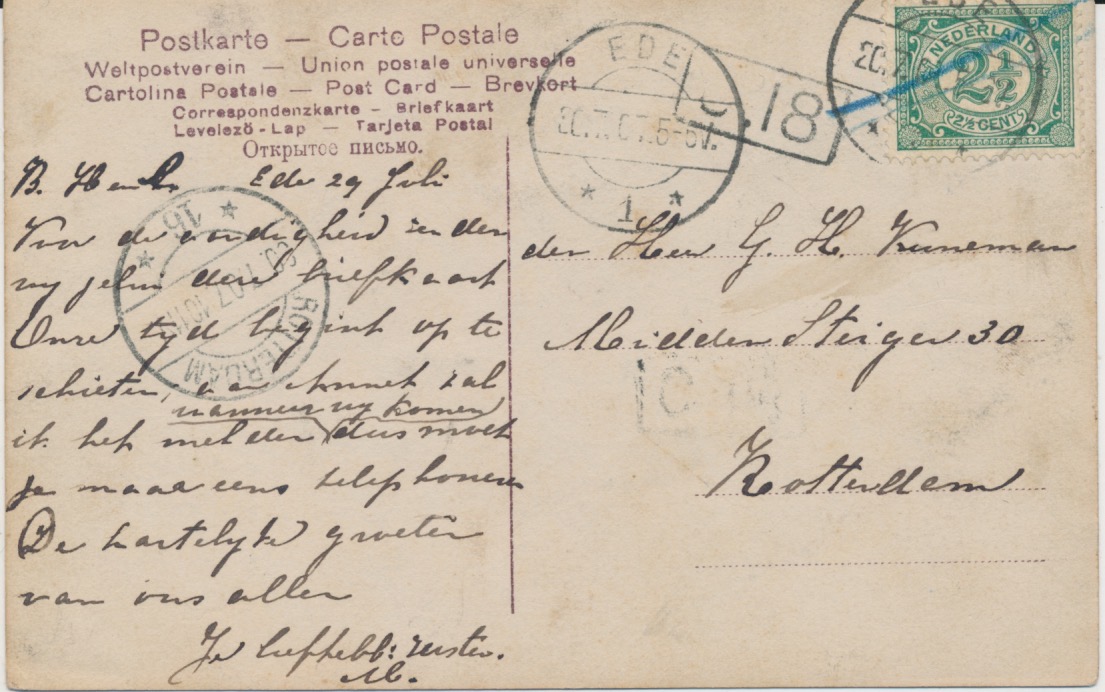 Postkarte — Carte Postale
Weltpostverein — Union postale universelle
Cartolina Postale — Post Card — Brevkort
Correspondenzkarte - Briefkaart
Levelező-Lap — Tarjeta Postal
Открытое письмо.
EDE
5-6V.
1
18
NEDERLAND
2½
2½ CENT
ROTTERDAM
15
B. Hen Ede 29 Juli
Voor de aardigheid zenden
wy jelui deze briefkaart
Onze tyd begint op te
schieten, aan Annet zal
wanneer wy komen
ik het melden dus moet
je maar eens telephoneren
De hartelyke groeten
van ons allen
Je liefhebb: zuster.
M.
den Heer G. H. Kuneman
Midden Steiger 30
Rotterdam